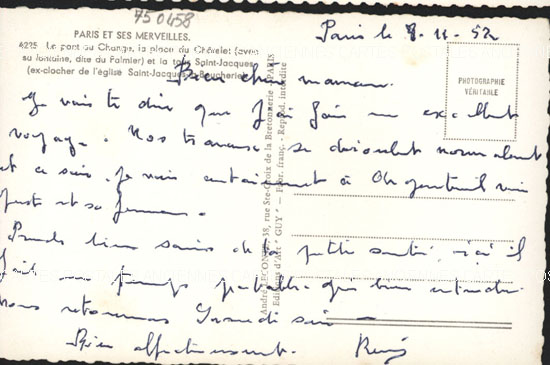 750458
Paris le 8-11-52
PARIS ET SES MERVEILLES.
4225 Le pont au Change, la place du Châtelet (avec
sa fontaine, dite du Palmier) et la tour Saint-Jacques
(ex-clocher de l'église Saint-Jacques-la-Boucherie)
PHOTOGRAPHIE
VÉRITABLE
Bien chère maman
Je vais te dire que j'ai fais un excellent
voyage. Nos travaux se déroulent normalement
et ce soir je vais à Argenteuil voir
et sa femme.
Prends bien soin de ta petite santé, ici il
fait un temps
nous retournons Samedi soir
Bien affectueusement. René
André LECONTE, 38, rue Ste-Croix de la Bretonnerie - PARIS
Editions d'Art "GUY" - Repr. interdite